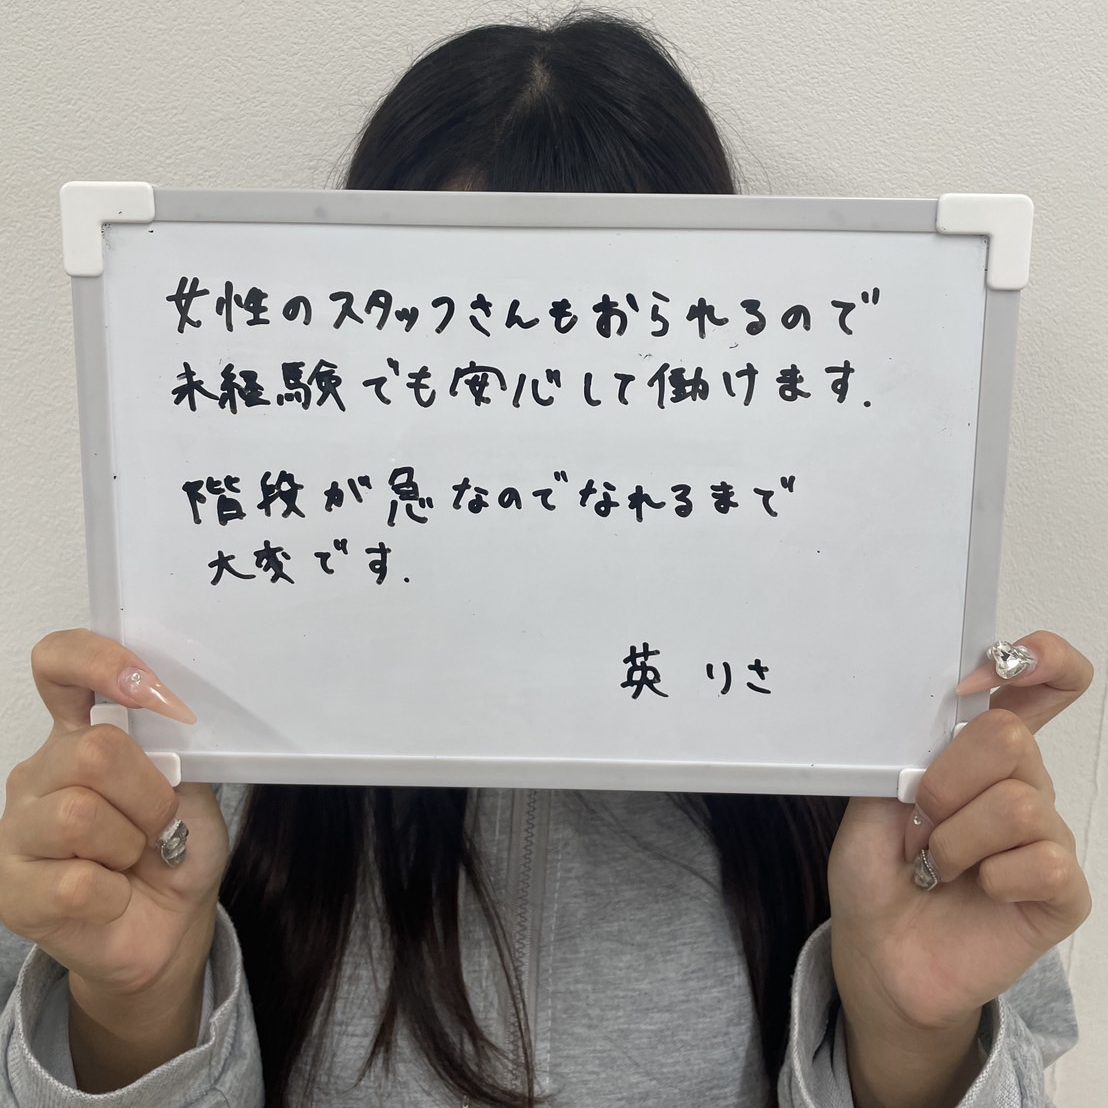 女性のスタッフさんもおられるので
未経験でも安心して働けます.
階段が急なのでなれるまで
大変です.
英 りさ